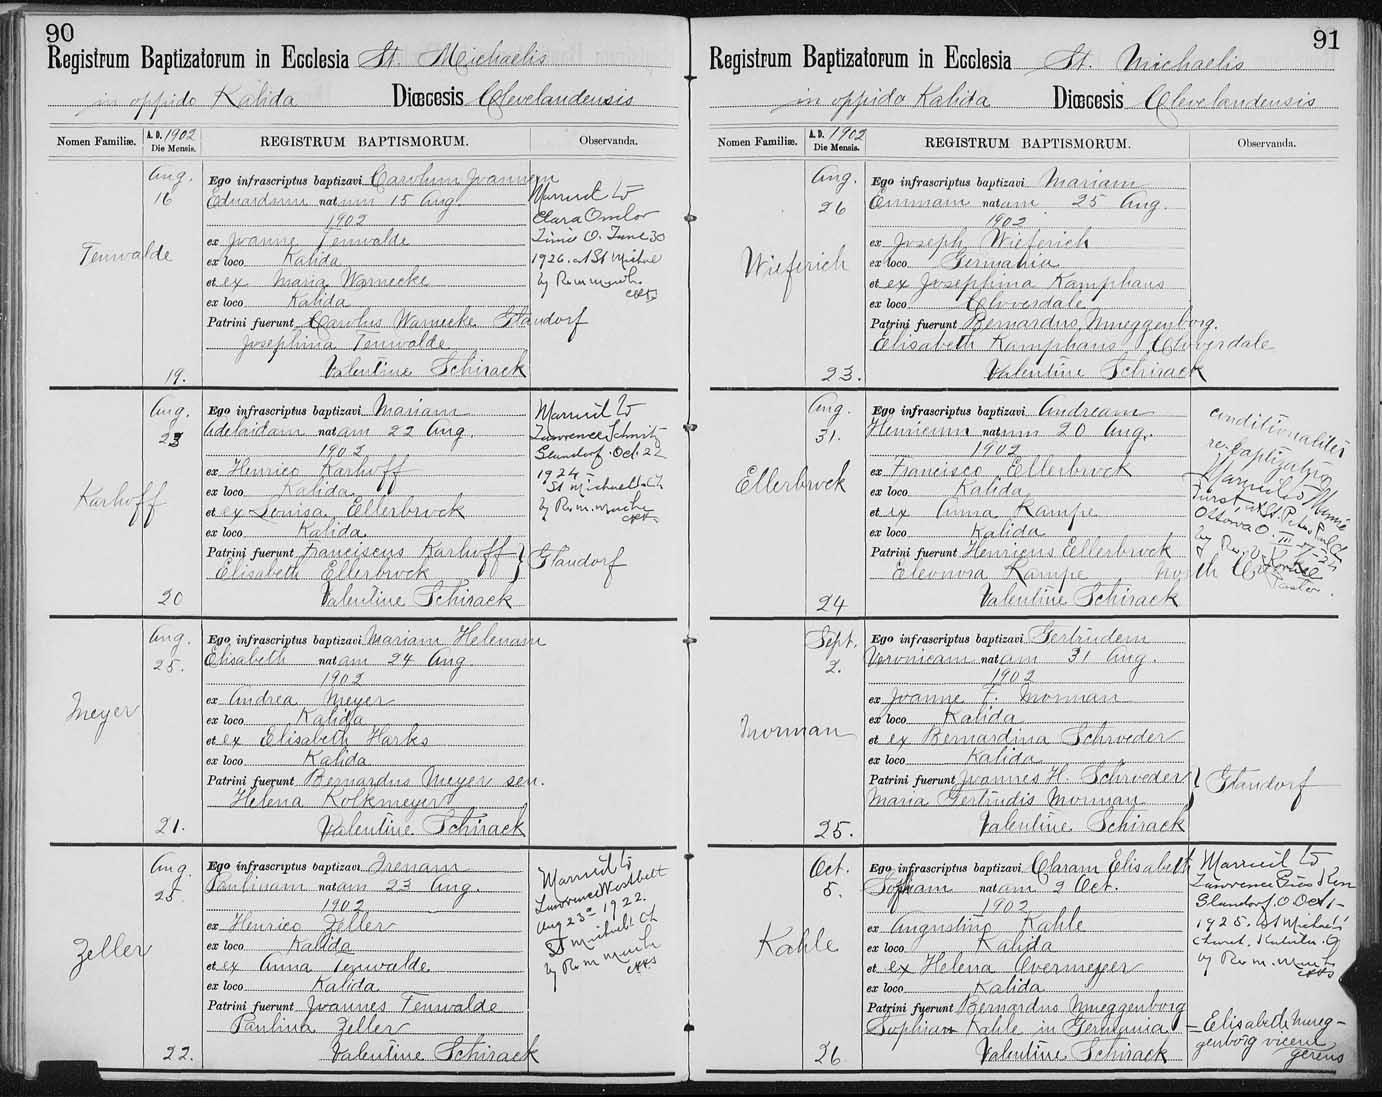 90
Registrum Baptizatorum in Ecclesia St. Michaelis
in oppido Kalida Diœcesis Clevelandensis
Nomen Familiæ. A. D. 1902 Die Mensis. REGISTRUM BAPTISMORUM. Observanda.
Tenwalde
Aug.
16
Ego infrascriptus baptizavi Carolum Joannem
Eduardum natum 15 Aug
1902
ex Joanne Tenwalde
ex loco Kalida
et ex Maria Warnecke
ex loco Kalida
Patrini fuerunt Carolus Warnecke Glandorf
Josephina Tenwalde
19. Valentine Schirack
Married to
Clara
O. June 30
1926. at St
by Rev. M.
Karhoff
Aug.
23
Ego infrascriptus baptizavi Mariam
Adelaidam natam 22 Aug.
1902
ex Henrico Karhoff
ex loco Kalida
et ex Louisa Ellerbrock
ex loco Kalida
Patrini fuerunt Franciscus Karhoff } Glandorf
Elisabeth Ellerbrock
20 Valentine Schirack
Married to
Lawrence
Glandorf. Oct. 22
1924
St Michaels Ch
by Rev. M.
Meyer
Aug.
25.
Ego infrascriptus baptizavi Mariam Helenam
Elisabeth natam 24 Aug
1902
ex Andrea Meyer
ex loco Kalida
et ex Elisabeth Harks
ex loco Kalida
Patrini fuerunt Bernardus Meyer sen.
Helena Kolkmeyer
21. Valentine Schirack
Zeller
Aug.
25.
Ego infrascriptus baptizavi Irenam
Paulinam natam 23 Aug.
1902
ex Henrico Zeller
ex loco Kalida
et ex Anna Tenwalde
ex loco Kalida
Patrini fuerunt Joannes Tenwalde
Paulina Zeller
22. Valentine Schirack
Married to
Lawrence
Aug 23 1922.
St Michaels Ch
by Rev. M.
91
Registrum Baptizatorum in Ecclesia St. Michaelis
in oppido Kalida Diœcesis Clevelandensis
Nomen Familiæ. A. D. 1902 Die Mensis. REGISTRUM BAPTISMORUM. Observanda.
Wieferich
Aug.
26
Ego infrascriptus baptizavi Mariam
Emmam natam 25 Aug.
1902
ex Joseph Wieferich
ex loco Germania
et ex Josephina Kamphaus
ex loco Cloverdale
Patrini fuerunt Bernardus Mueggenborg.
Elisabeth Kamphaus Cloverdale
23. Valentine Schirack
Ellerbrock
Aug.
31.
Ego infrascriptus baptizavi Andream
Henricum natum 20 Aug.
1902
ex Francisco Ellerbrock
ex loco Kalida
et ex Anna Kampe
ex loco Kalida
Patrini fuerunt Henricus Ellerbrock
Eleonora Kampe North Cr
24 Valentine Schirack
conditionaliter
rebaptizatus
Married to Minnie
Ottowa O.
by Rev.
Pastor.
Morman
Sept.
2.
Ego infrascriptus baptizavi Gertrudem
Veronicam natam 31 Aug.
1902
ex Joanne F. Morman
ex loco Kalida
et ex Bernardina Schroeder
ex loco Kalida
Patrini fuerunt Joannes H. Schroeder } Glandorf
Maria Gertrudis Morman
25. Valentine Schirack
Kahle
Oct.
5.
Ego infrascriptus baptizavi Claram Elisabeth
Sophiam natam 2 Oct.
1902
ex Augustino Kahle
ex loco Kalida
et ex Helena Overmeyer
ex loco Kalida
Patrini fuerunt Bernardus Mueggenborg
Sophia Kahle in Germania
26 Valentine Schirack
Married to
Lawrence
Glandorf. O Oct 1-
1925. St Michaels
Church, Kalida. O
by Rev. M.
– Elisabeth Mueg-
genborg vicem
gerens